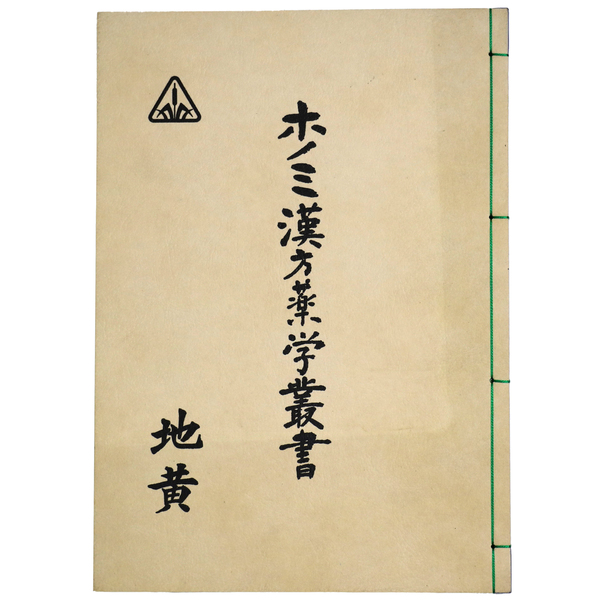 ホノミ漢方薬学叢書
地黄